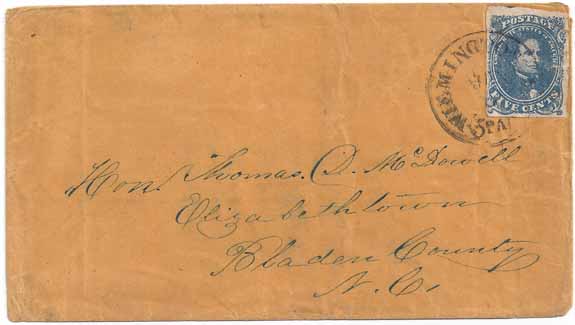 POSTAGE
FIVE CENTS
WILMINGTON
5 PAI
Hon. Thomas. D. McDowell
Elizabethtown
Bladen County
N. C.